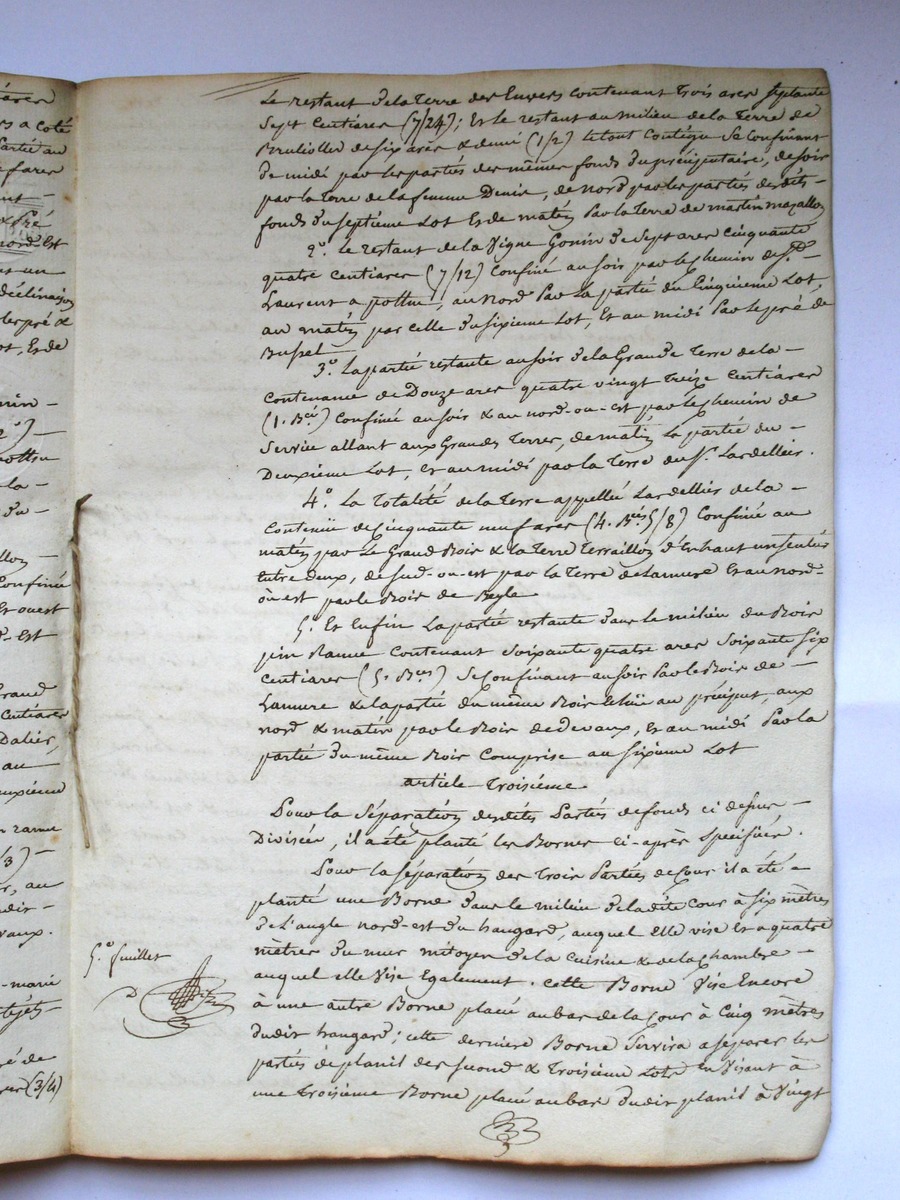 iaires
rs a coté
Partie au
e fares
ant
& Pré
nord-Est
est un
déclinaison
les pré &
ot, Et de
min-
2°)-
la-
du-
Confiné
Et ouest
d-Est
Grand
Centiares
Dalies,
au
euxième
/3)-
er, au
vaux.
-marie
ré de
(3/4)
Le restant de la Terre des Envers contenant Trois ares septante
Sept Centiares (7/24); Et le restant au milieu de la Terre de
Brulioller de six ares & demi (1/2) le tout contigu se confinant
de midi par les parties des mêmes fonds du préciputaire, de soir
par la Terre de la femme Denis, de nord par les parties desdits-
fonds du septième Lot Et de matin Par la Terre de martin mazallon
2°. Le restant de la Vigne Gonin de Sept ares Cinquante
quatre Centiares (7/12) Confiné au soir par le chemin de St.-
Laurent a pollieu, au Nord Par la partie du Cinquième Lot,
au matin par celle du sixième Lot, Et au midi Par le pré de
Buffet
3°. La partie restante au soir de la Grande Terre de la-
Contenance de Douze ares quatre vingt Treize Centiares
(1. Bée) Confiné au soir & au nord-ou-est par le chemin de
Service allant aux Grandes Terres, de matin la partie du-
Deuxième Lot, Et au midi par la Terre du Sr. Lardellier.
4°. La Totalité de la Terre appellée Lardellier de la-
Contenüe de Cinquante neuf ares (4. Bées 5/8) Confiné au
matin par Le Grand Bois & la Terre Terraillon d'Enhaut un sentier
Entre deux, de sud-ou-est par la Terre de Lamure Et au nord-
ou-est par le Bois de Beyle
5°. Et Enfin La partie restante dans le milieu du Bois
pin Ramé Contenant Soixante quatre ares Soixante Six
Centiares (5. Bées) Se Confinant au soir Par le Bois de-
Lamure & la partie du même Bois Echüe au préciput, aux
nord & matin par le Bois de Devaux, Et au midi Par la
partie du même Bois Comprise au Sixième Lot
article Troisième
Pour la Séparation desdites Parties de fonds ci dessus-
Divisées, il a été planté les Bornes ci-après Spécifiées.
Pour la séparation des Trois Parties de Cour il a été-
planté une Borne dans le milieu de ladite Cour à Six mètres
de l'angle nord-est du hangard, auquel Elle vise Et a quatre
mètres du mur mitoyen de la Cuisine & de la Chambre-
auquel elle Vise Egalement. Cette Borne Vise Encore
à une autre Borne placée au bas de la Cour à Cinq mètres
dudit hangard; cette dernière Borne Servira a séparer les
parties de planil des second & Troisième Lots En Visant à
une Troisième Borne placée au bas dudit planil à Vingt
5°. feuillet